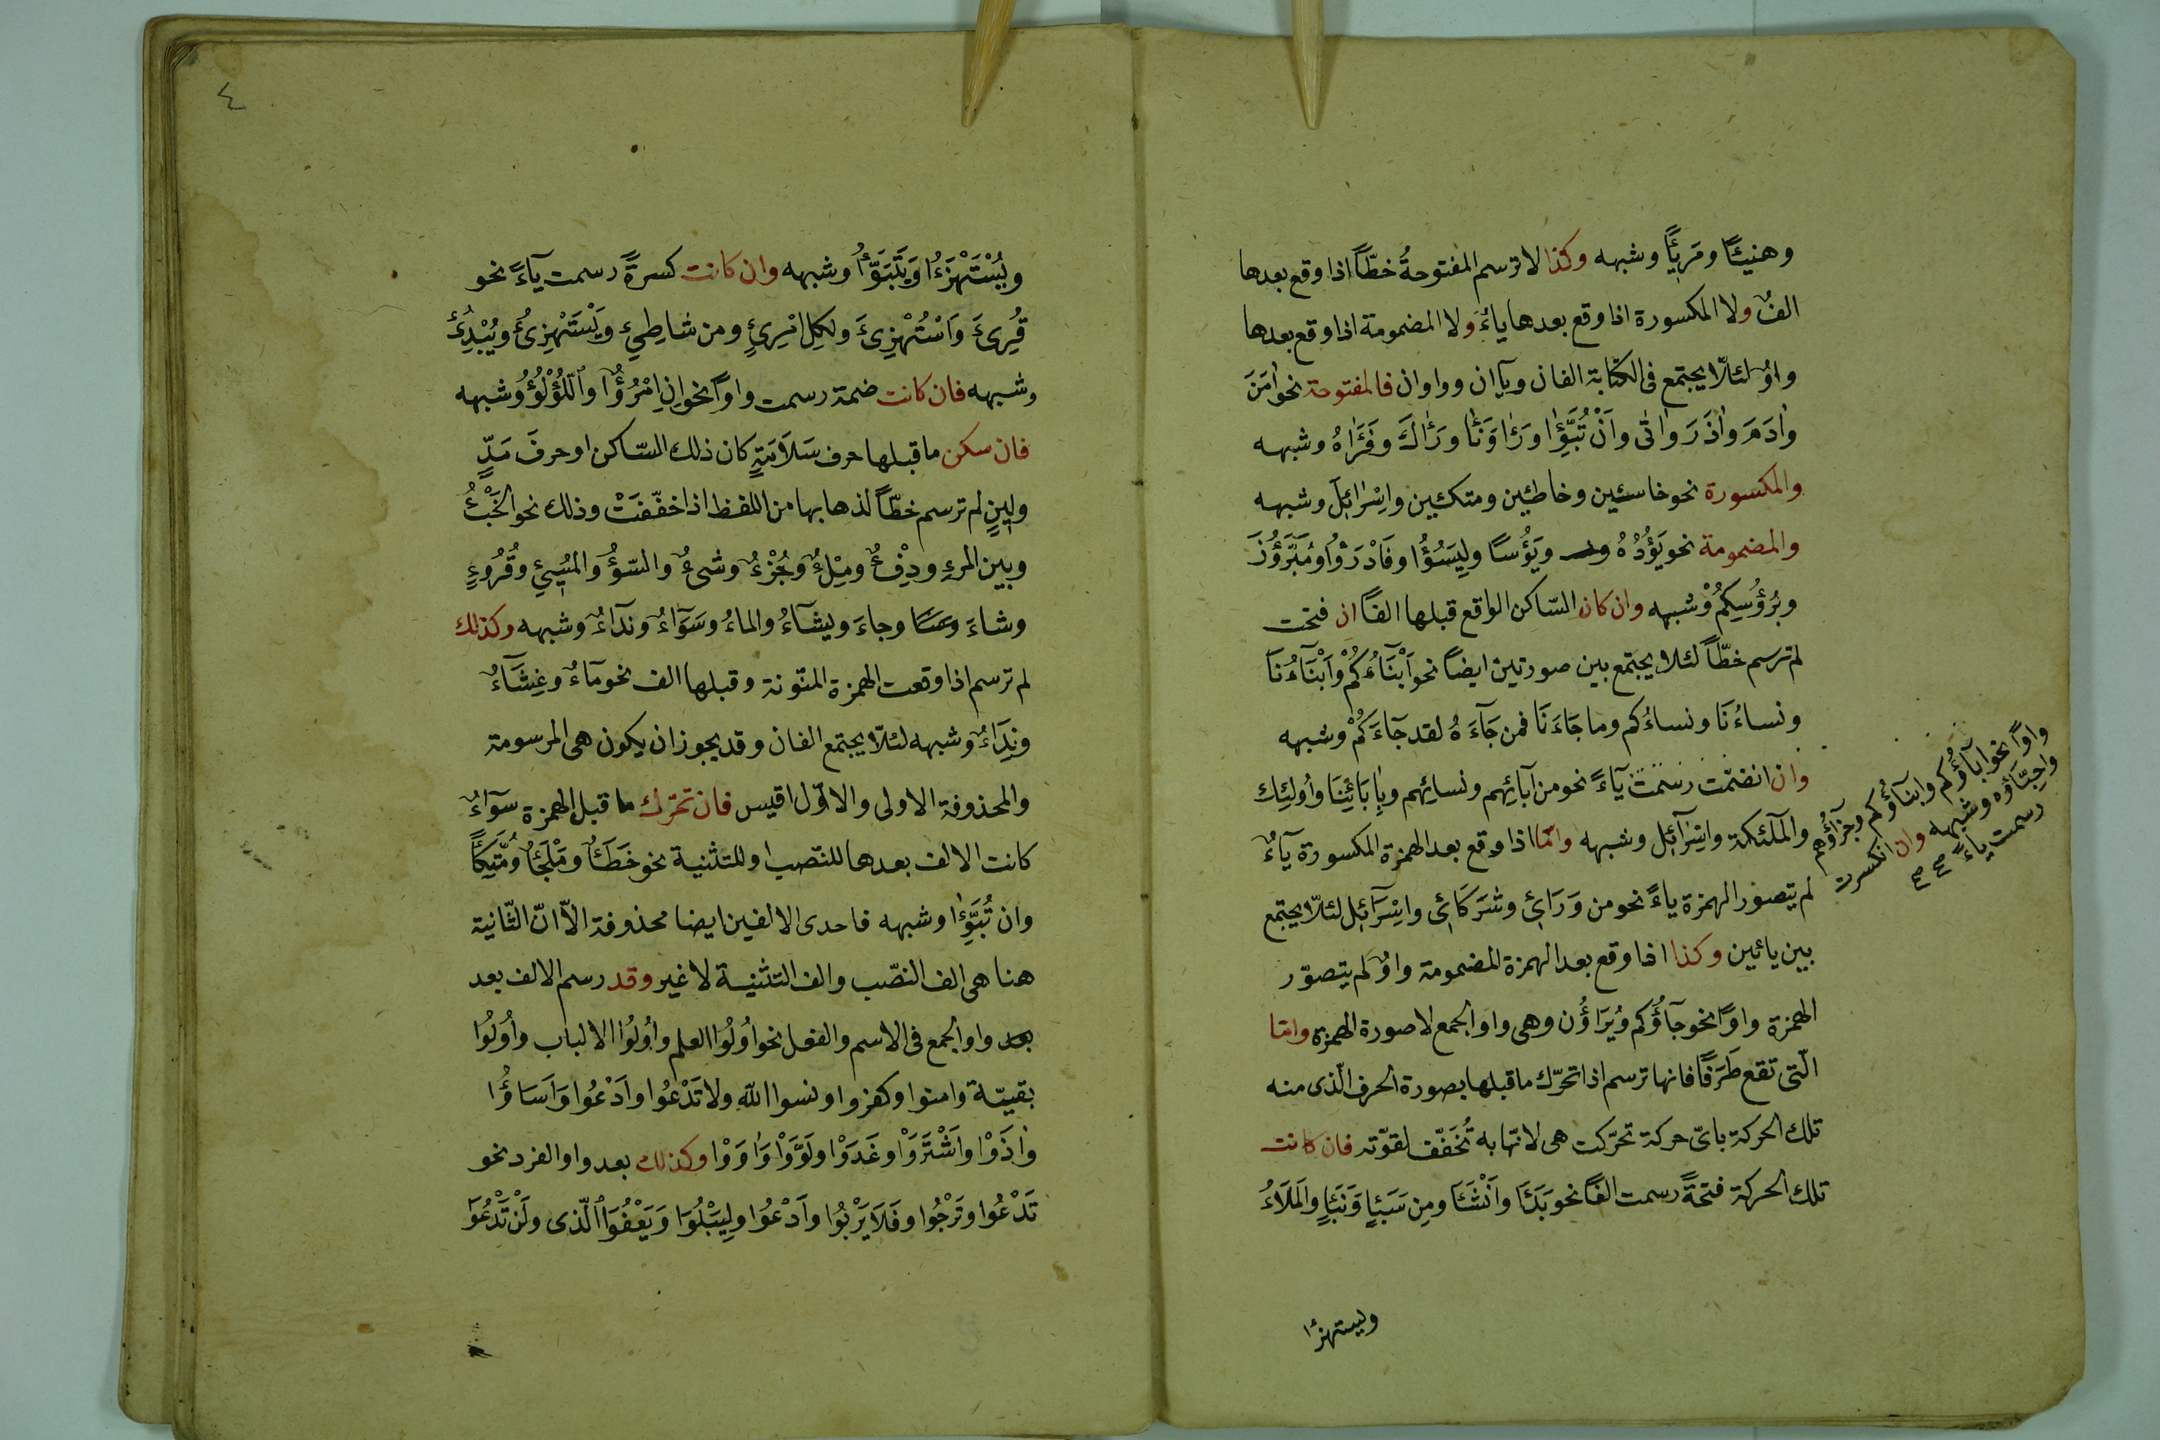 وهنيئًا ومَرئًا وشبهه وكذا لا ترسم المفتوحةُ خطّاً اذا وقع بعدها
الفٌ ولا المكسورة اذا وقع بعدها ياءٌ ولا المضمومة اذا وقع بعدها
واوٌ لئلّا يجتمع فى الكتابة الفان ويآان وواوان فالمفتوحة نحو اٰمَنَ
واٰدَمَ واٰذَرَ واٰتٰى واَنْ تُبَوَّءَٰا ورَاٰ وَنَاٰ ورَاٰكَ وفَرَاٰهُ وشبهه
والمكسورة نحو خاسئين وخاطئين ومتكئين واِسْرٰائلَ وشبهه
والمضمومة نحو يَؤُدُهُ ويَؤُسًا ولِيَسُؤُا وفَادْرَؤُا ومُبَرَّؤُنَ
وبُرؤُسِكُمْ وشبهه وان كان السّاكن الواقع قبلها الفًا ان فتحت
لم ترسم خطّاً لئلا يجتمع بين صورتين ايضاً نحو اَبْنَاءَكُمْ وَاَبْنَاءَنَا
ونساءَنَا ونساءَكم وما جَاءَنَا فمن جَآءَهُ لقد جآءَكُمْ وشبهه
وان انضمّت رسمت يآءً نحو من آبائهم ونسائهم وبِاٰبَائِنَا واُولئِك
والملٰئكة واِسْرٰآئل وشبهه وامّا اذا وقع بعد الهمزة المكسورة يآءٌ
لم يتصور الهمزة ياءً نحو من وَرَائِ وشُرَكَائِ واِسْرَآئل لئلّا يجتمع
بين يائين وكذا اذا وقع بعد الهمزة المضمومة واوٌ لم يتصوّر
الهمزة واوًا نحو جآؤُكم ويُرَاؤُن وهى واو الجمع لا صورة الهمزة وامّا
الّتى تقع طَرَفًا فانها ترسم اذا تحرّك ما قبلها بصورة الحرف الّذى منه
تلك الحركة باىّ حركة تحرّكت هى لانّها به تُخَفّف لقوّته فان كانت
تلك الحركة فتحةً رسمت الفًا نحو بَدَأَ واَنْشَأَ ومِن سَبَإٍ وَنَبَإٍ والمَلَاءُ
واوًا نحو اٰبآؤُكم وابنآؤُكم وجزآؤُهم
واحبّاؤه وشبهه وان انكسرت
رسمت ياءً صح صح
ويستهزءُا
ويُسْتَهْزَءُا وَيَتَبَوَّأُ وشبهه وان كانت كسرةً رسمت يآءً نحو
قُرِئَ وَاسْتُهْزِئَ ولكل امْرِئٍ ومن شاطِئِ ويَسْتَهْزِئُ ويُبْدِئُ
وشبهه فان كانت ضمة رسمت واوًا نحو اِنِ امْرُؤٌا واللّؤْلُؤُ وشبهه
فان سكن ما قبلها حرف سَلاَمَةٍ كان ذلك السّاكن او حرفَ مَدٍّ
ولينٍ لم ترسم خطّاً لذهابها من اللفظ اذا خفّفَتْ وذلك نحو الخَبْءُ
وبين المرءِ ودِفْءٌ ومِلْءٌ وجُزْءٌ وشىءٌ والسّوءُ والمُسِئُ وقُرُوءٍ
وشاءَ وجاءَ ويشآءُ والماءُ وسَوَآءٌ وندآءٌ وشبهه وكذلك
لم ترسم اذا وقعت الهمزة المنوّنة وقبلها الف نحو مآءً وغِشَآءً
ونِدَاءً وشبهه لئلّا يجتمع الفان وقد يجوز ان يكون هى المرسومة
والمحذوفة الاولى والاوّل اقيس فان تحرّك ما قبل الهمزة سوآءٌ
كانت الالف بعدها للنّصب او للتثنية نحو خَطَئًا ومَلْجَئًا ومُتّكَئًا
وان تُبَوَّءَٰا وشبهه فاحدى الالفين ايضا محذوفة الّا انّ الثّانية
هنا هى الف النّصب والف التثنية لا غير وقد رسم الالف بعد
واو الجمع فى الاسم والفعل نحو اُولُوا العلم واُولُوا الالباب واُولُوا
بقيّة وامنوا وكفروا ونسوا الله ولا تَدْعُوا وادْعُوا وَاَسَاؤُا
واٰذَوْا واشْتَرَوْا وغَدَوْا ولَوَّوْا وَاٰوَوْا وكذلك بعد واو الفرد نحو
تَدْعُوا وتَرْجُوا وفَلاَ يَرْبُوا واَدْعُوا ولِيَبْلُوَا وَيَعْفُوَا الّذى ولَنْ تَدْعُوَا
٤